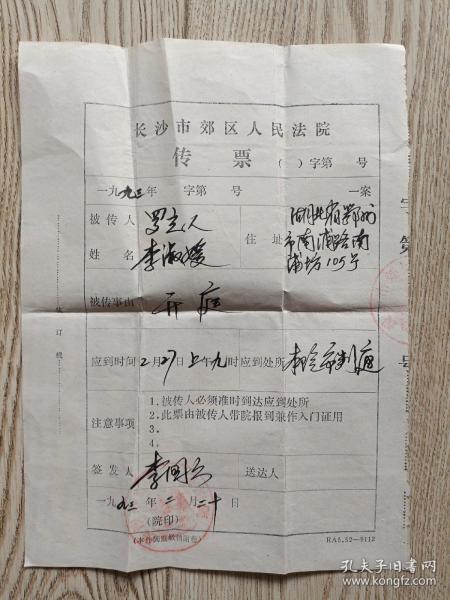 长沙市郊区人民法院
传票 ( )字第 号
一九九三年 字第 号 一案
被传人
姓名
李淑媛
住址
湖北省鄂州
市南浦路南
浦坊105号
被传事由 开庭
应到时间 2月27日上午九时 应到处所 本院审判庭
注意事项
1.被传人必须准时到达应到处所
2.此票由被传人带院报到兼作入门证用
3.
4.
签发人 李国 送达人
一九九三年二月二十日
(院印)
RA5.52—9112
装订线
字第
号
孔夫子旧书网
www.kongfz.com